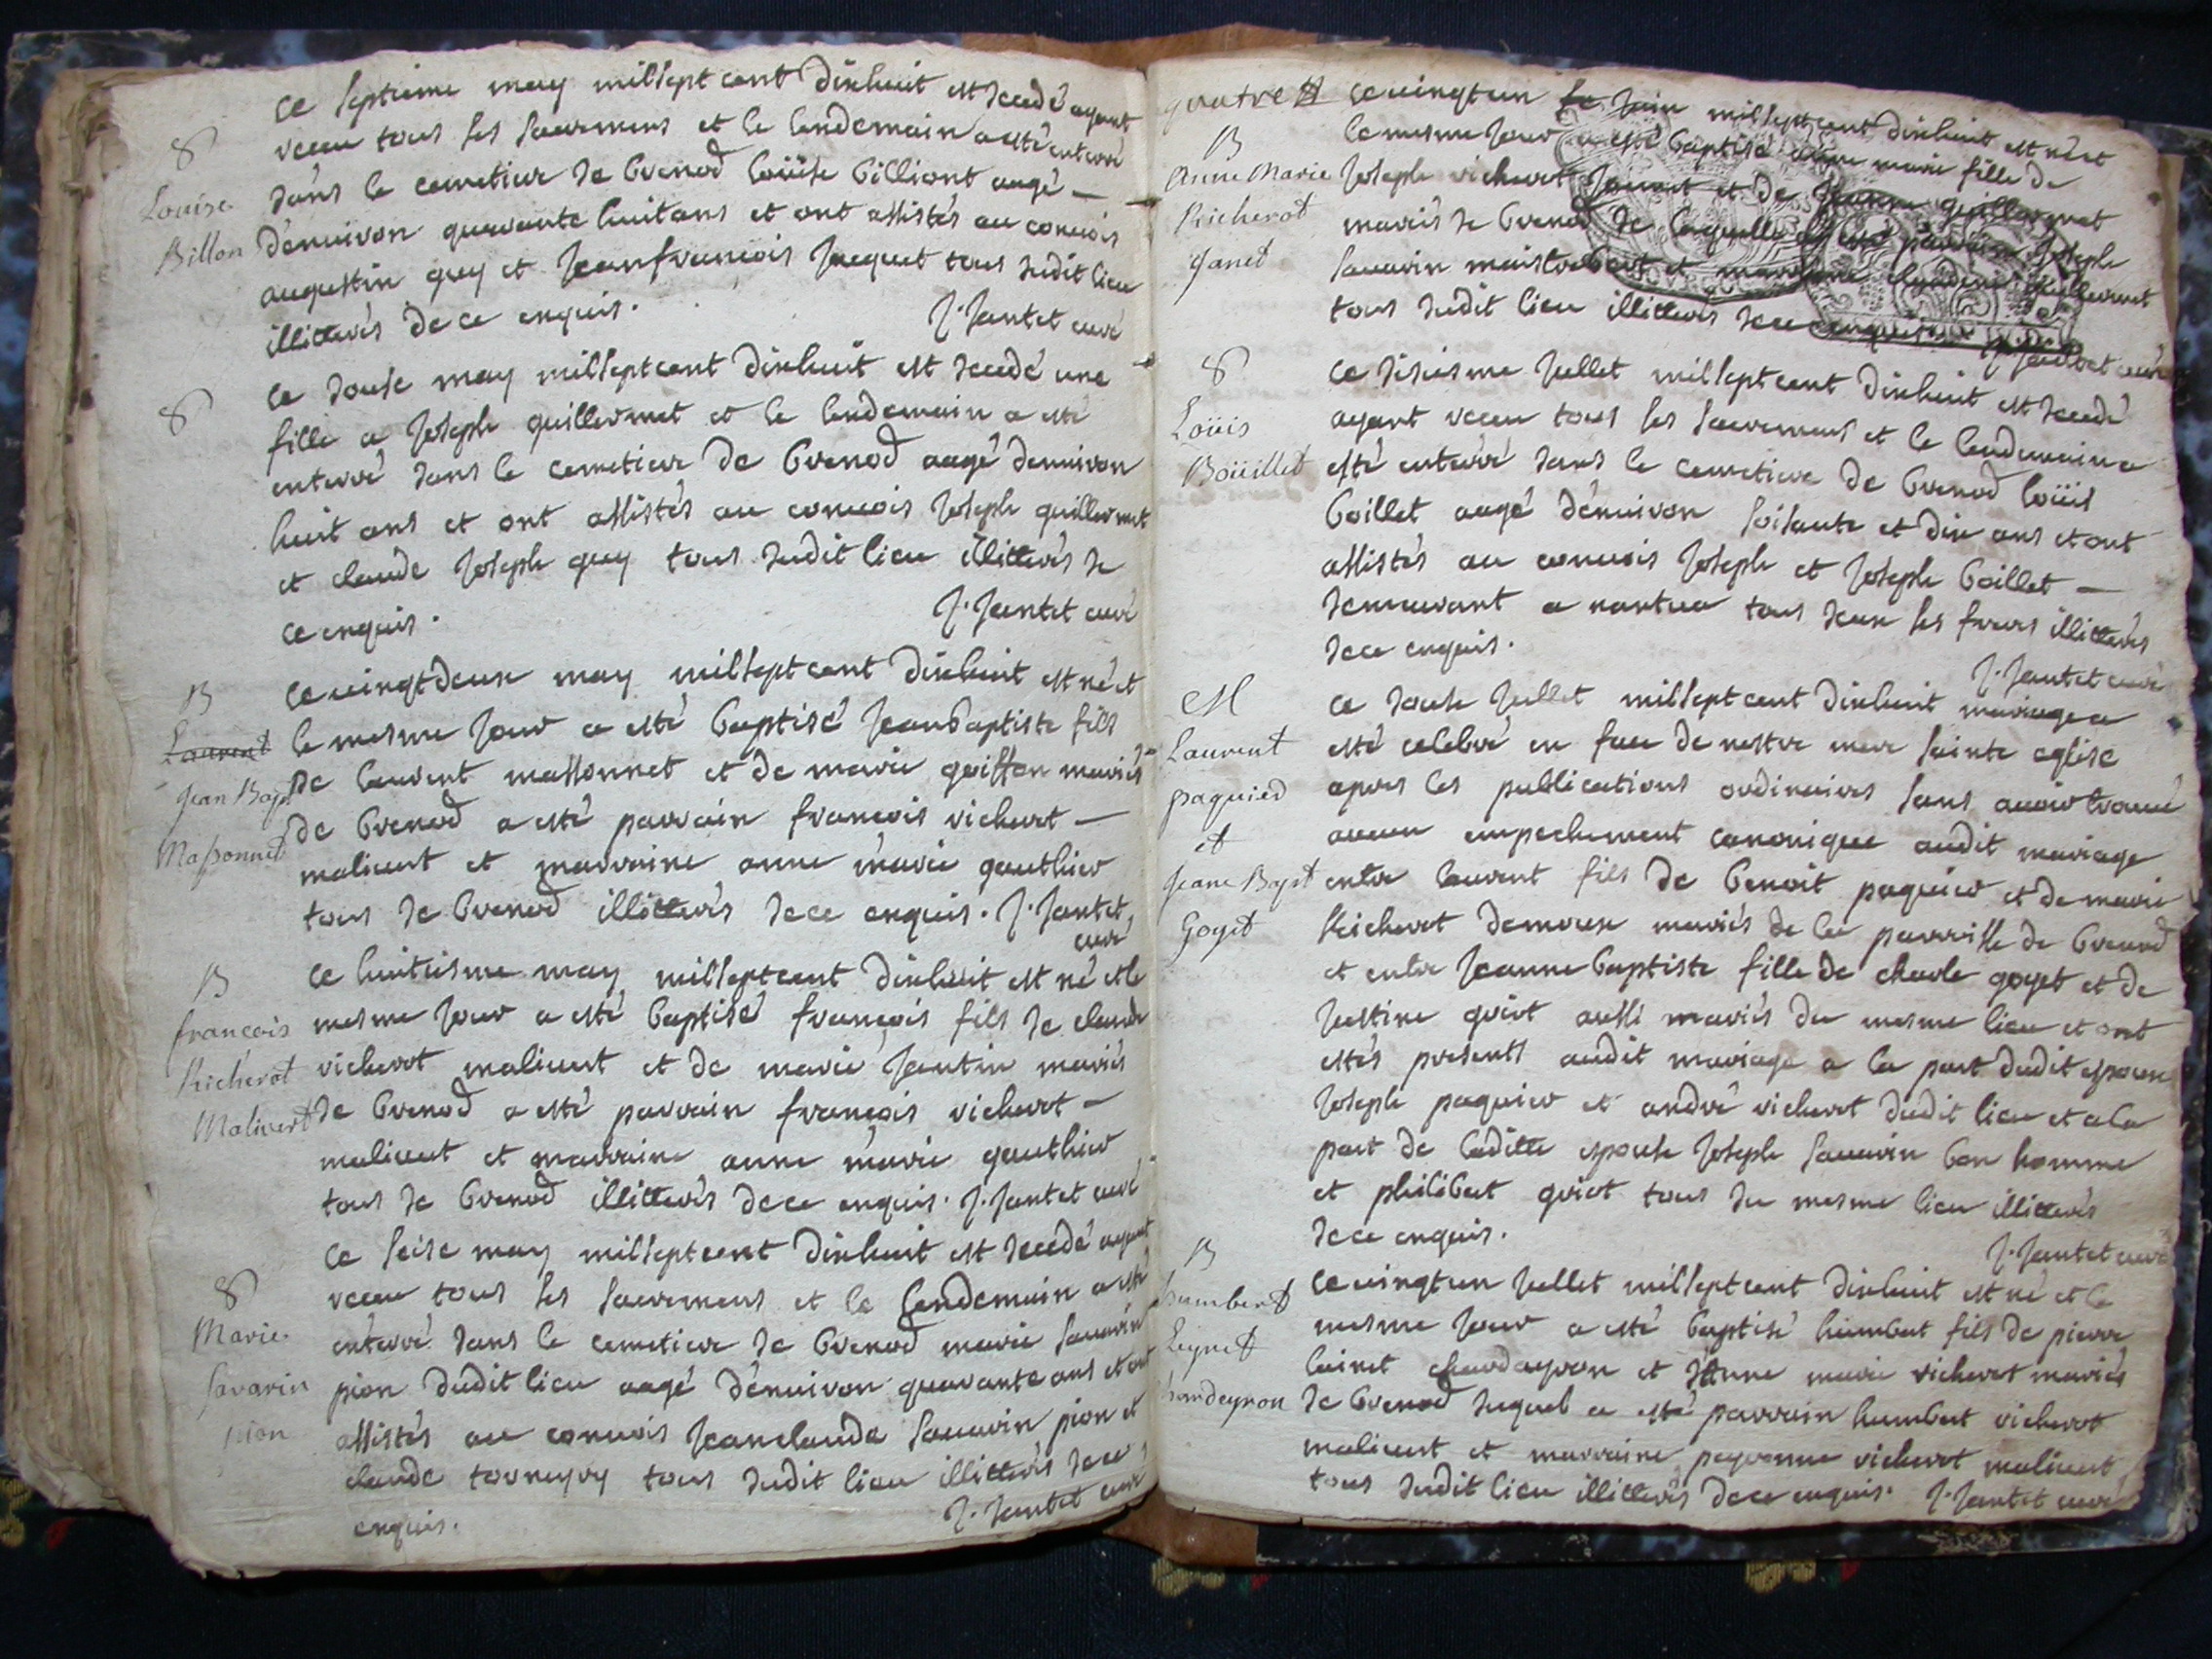 ce septieme may mil sept cent dixhuit est decedé ayant
8
receu tous les sacremens et le lendemain a esté enterré
Louise
dans le cemetiere de brenod loüise billiont aagé —
Billon
d'enuiron quarante huit ans et ont assistés au conuois
augustin guy et Jean francois Jacquet tous dudit lieu
illitterés de ce enquis.
J. Jantet curé
8
ce douse may mil sept cent dixhuit est decedé une
fille a Joseph guillermet et le lendemain a esté
enterré dans le cemetiere de brenod aagé denuiron
huit ans et ont assistés au conuois Joseph guillermet
et claude Joseph guy tous dudit lieu illitterés de
ce enquis.
J. Jantet curé
B
ce uingt deux may mil sept cent dixhuit est né et
Laurent
le mesme Jour a esté baptisé Jean baptiste fils
Jean Bapt
de laurent massonnet et de marie goiffon mariés
Massonnet
de brenod a esté parrain francois richerot —
maliuert et marraine anne marie gauthier
tous de brenod illitterés de ce enquis. J. Jantet
curé
B
ce huitiesme may mil sept cent dixhuit est né et le
francois
mesme Jour a esté baptisé françois fils de claude
Richerot
richerot maliuert et de marie Jantin mariés
Malivert
de brenod a esté parrain françois richerot —
maliuert et marraine anne marie gauthier
tous de brenod illitterés de ce enquis. J. Jantet curé
ce seise may mil sept cent dixhuit est decedé ayant
8
receu tous les sacremens et le lendemain a esté
Marie
enterré dans le cemetiere de brenod marie sauarin
savarin
pion dudit lieu aagé d'enuiron quarante ans et ont
pion
assistés au conuois Jean claude sauarin pion et
claude tournyry tous dudit lieu illitterés de ce
enquis.
J. Jantet curé
quatre
ce uingt un Juin mil sept cent dixhuit est né et
B
le mesme Jour a esté baptisé anne marie fille de
Anne Marie
Joseph richerot Jannet et de Jeanne guillermet
Richerot
mariés de brenod de laquelle a esté parrain Joseph
Janet
sauarin et marraine claudine guillermet
tous dudit lieu illitterés de ce enquis. J. Jantet curé
8
ce sisiesme Jullet mil sept cent dixhuit est decedé
Loüis
ayant receu tous les sacremens et le lendemain a
Boüillet
esté enterré dans le cemetiere de brenod loüis
boillet aagé d'enuiron soisante et dix ans et ont
assistés au conuois Joseph et Joseph boillet —
demeurant a nantua tous deux ses freres illitterés
de ce enquis.
J. Jantet curé
M
ce douse Jullet mil sept cent dixhuit mariage a
Laurent
esté celebré en face de nostre mere sainte eglise
paquied
apres les publications ordinaires sans auoir trouué
et
aucun empechement canonique audit mariage
Jeane Bapt
entre laurent fils de benoit paquier et de marie
Goyet
Richerot demoux mariés de la parroisse de brenod
et entre Jeanne baptiste fille de charle goyet et de
Justine guiot aussi mariés du mesme lieu et ont
estés presents audit mariage a la part dudit espoux
Joseph paquier et andré richerot dudit lieu et a la
part de laditte espouse Joseph sauarin bon homme
et philibert guiot tous du mesme lieu illitterés
de ce enquis.
J. Jantet curé
B
ce uingt un Jullet mil sept cent dixhuit est né et le
humbert
mesme Jour a esté baptisé humbert fils de pierre
Leynet
lainet chardeyron et d'Anne marie richerot mariés
chardeyron
de brenod duquel a esté parrain humbert richerot
maliuert et marraine peyronne richerot maliuert
tous dudit lieu illitterés de ce enquis. J. Jantet curé